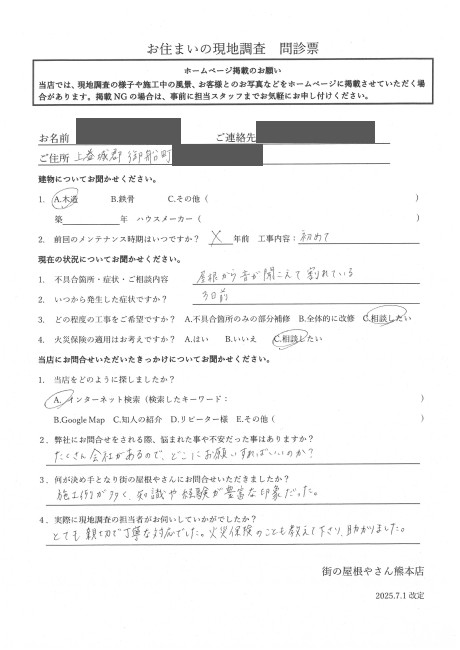 お住まいの現地調査　問診票
ホームページ掲載のお願い
当店では、現地調査の様子や施工中の風景、お客様とのお写真などをホームページに掲載させていただく場
合があります。掲載NGの場合は、事前に担当スタッフまでお気軽にお申し付けください。
お名前　ご連絡先
ご住所　上益城郡 御船町
建物についてお聞かせください。
1.　A.木造　B.鉄骨　C.その他（　）
築　年　ハウスメーカー（　）
2.　前回のメンテナンス時期はいつですか？　×　年前　工事内容：初めて
現在の状況についてお聞かせください。
1.　不具合箇所・症状・ご相談内容　屋根から音が聞こえて割れている
2.　いつから発生した症状ですか？　3日前
3.　どの程度の工事をご希望ですか？　A.不具合箇所のみの部分補修　B.全体的に改修　C.相談したい
4.　火災保険の適用はお考えですか？　A.はい　B.いいえ　C.相談したい
当店にお問合せいただいたきっかけについてお聞かせください。
1.　当店をどのように探しましたか？
A.インターネット検索（検索したキーワード：　）
B.Google Map　C.知人の紹介　D.リピーター様　E.その他（　）
2．弊社にお問合せをされる際、悩まれた事や不安だった事はありますか？
たくさん会社があるので、どこにお願いすればいいのか？
3．何が決め手となり街の屋根やさんにお問合せいただきましたか？
施工例が多く、知識や経験が豊富な印象だった。
4．実際に現地調査の担当者がお伺いしていかがでしたか？
とても親切で丁寧な対応でした。火災保険のことも教えて下さり、助かりました。
街の屋根やさん熊本店
2025.7.1 改定